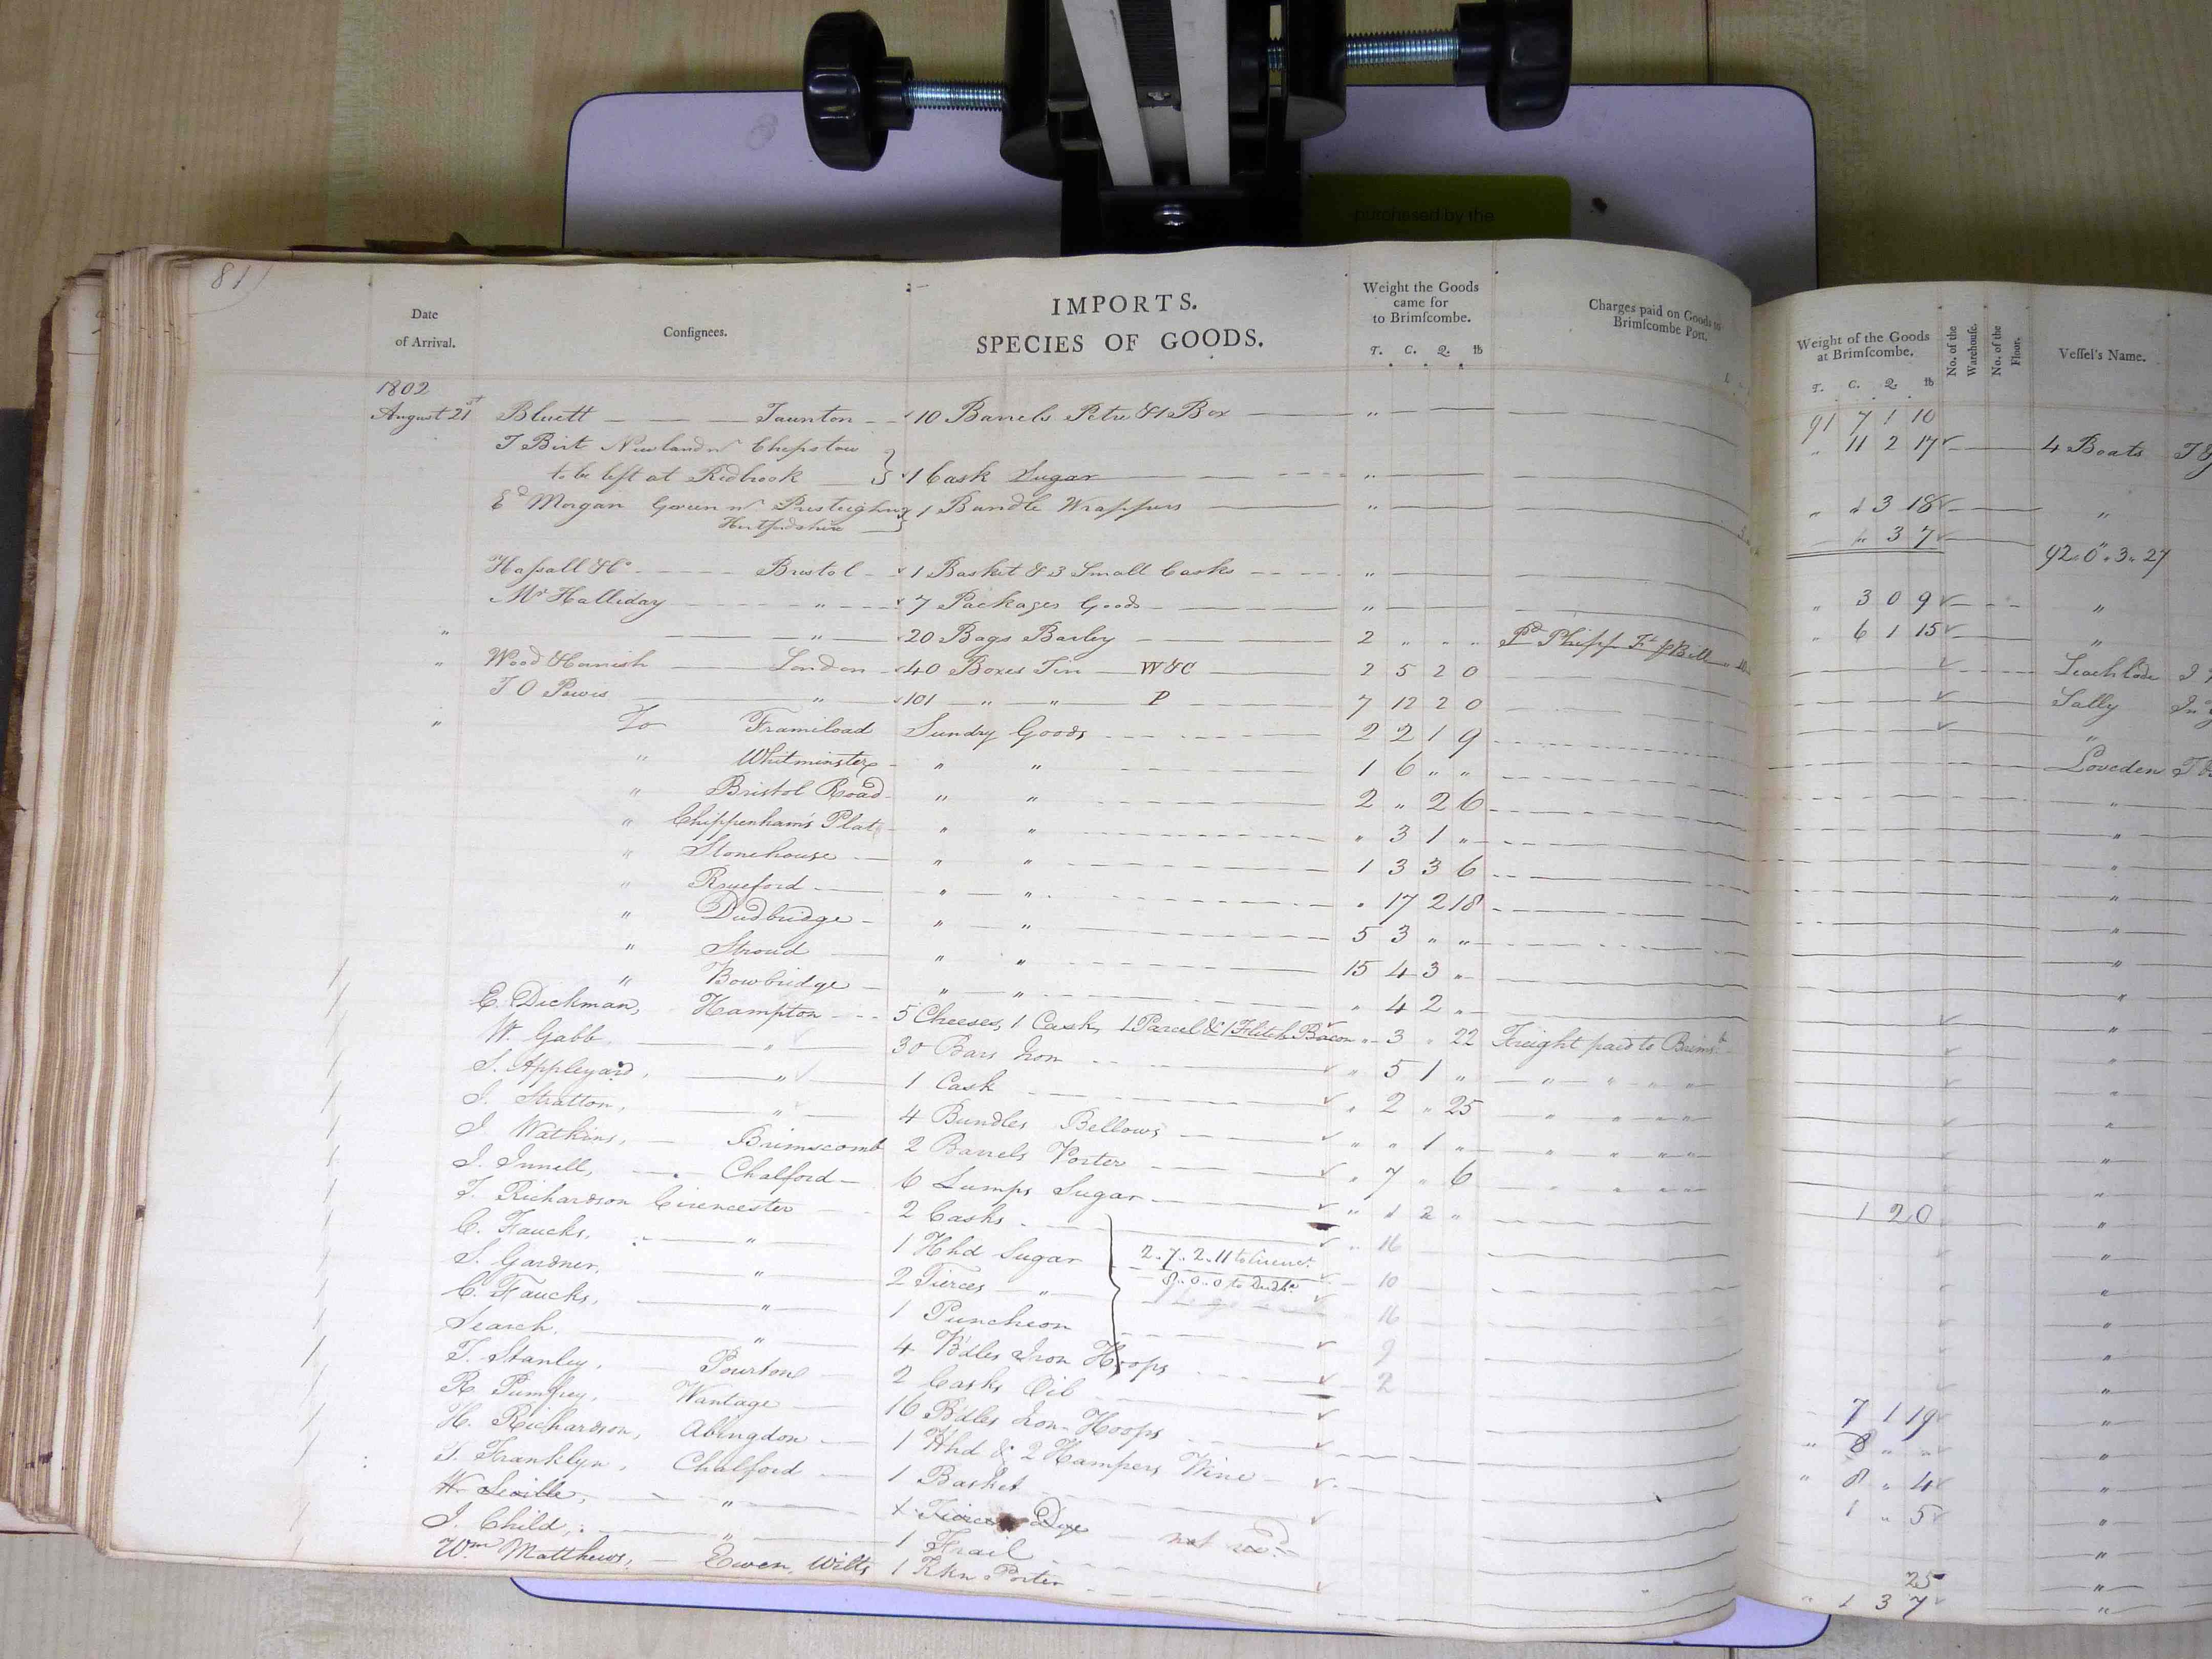 purchased by the
81
Date of Arrival.
Consignees.
IMPORTS.
SPECIES OF GOODS.
Weight the Goods came for to Brimscombe.
T. C. Q. lb
Charges paid on Goods to Brimscombe Port.
Weight of the Goods at Brimscombe.
T. C. Q. lb
No. of the Warehouse.
No. of the Floor.
Vessel's Name.
1802
August 21st Bluett Taunton 10 Barrels Petre & 1 Box " 91 7 1 10
T Birt Newland nr Chepstow 11 2 17 4 Boats
to be left at Redbrook 1 Cask Sugar "
Ed Morgan Green nr Presteighng 1 Bundle Wrappers " " 1 3 18 "
Hertfordshire " 3 7
92 " 0 " 3 " 27
Hassall & Co Bristol 1 Basket & 3 Small Casks " " 3 0 9 "
Mr Halliday " 7 Packages Goods " " 6 1 15 "
" " 20 Bags Barley 2 " " " Pd Phipps Ft Bill Leachlade
" Wood & Hanish London 40 Boxes Tin W&C 2 5 2 0 Sally
T O Powis " 101 " " P 7 12 2 0 "
" To Frameload Sundry Goods 2 2 1 9 Loveden
" Whitminster " " 1 6 " " "
" Bristol Road " " 2 " 2 6 "
" Chippenham's Plat " " " 3 1 " "
" Stonehouse " " 1 3 3 6 "
" Ryeford " " " 17 2 18 "
" Dudbridge " " 5 3 " " "
" Stroud " " 15 4 3 " "
" Bowbridge " " " 4 2 " "
E. Dickman, Hampton 5 Cheeses, 1 Cask, 1 Parcel & 1 Flitch Bacon " 3 " 22 Freight paid to Brimsb "
W. Gabb " 30 Bars Iron " 5 1 " " " " " "
S. Appleyard, " 1 Cask " 2 " 25 " " " " "
J. Stratton, " 4 Bundles Bellows " " 1 " " " " " "
J. Watkins, Brimscomb 2 Barrels Porter " 7 " 6 " " " " "
J. Innell, Chalford 6 Lumps Sugar " 1 2 " 1 2 0 "
T. Richardson Cirencester 2 Casks " 16 "
C. Faucks, " 1 Hhd Sugar 2 . 7 . 2 . 11 to Cirencr. 10 "
S. Gardner, " 2 Tierces " 8 . 0 . 0 to Dudbe 16 "
C. Faucks, " 1 Puncheon 9 "
Search, " 4 Bdles Iron Hoops 2 "
T. Stanley, Pourton 2 Casks Oil 7 1 19 "
R. Pumfrey, Wantage 16 Bdles Iron Hoops " 8 " " "
H. Richardson, Abingdon 1 Hhd & 2 Hampers Wine " 8 " 4 "
T. Franklyn, Chalford 1 Basket 1 " 5 "
W. Seville, " 1 Tierce Dye not recd. "
J. Child, " 1 Frail 25 "
Wm Matthews, Ewen, Wilts 1 Kkn Porter " 1 3 7 "